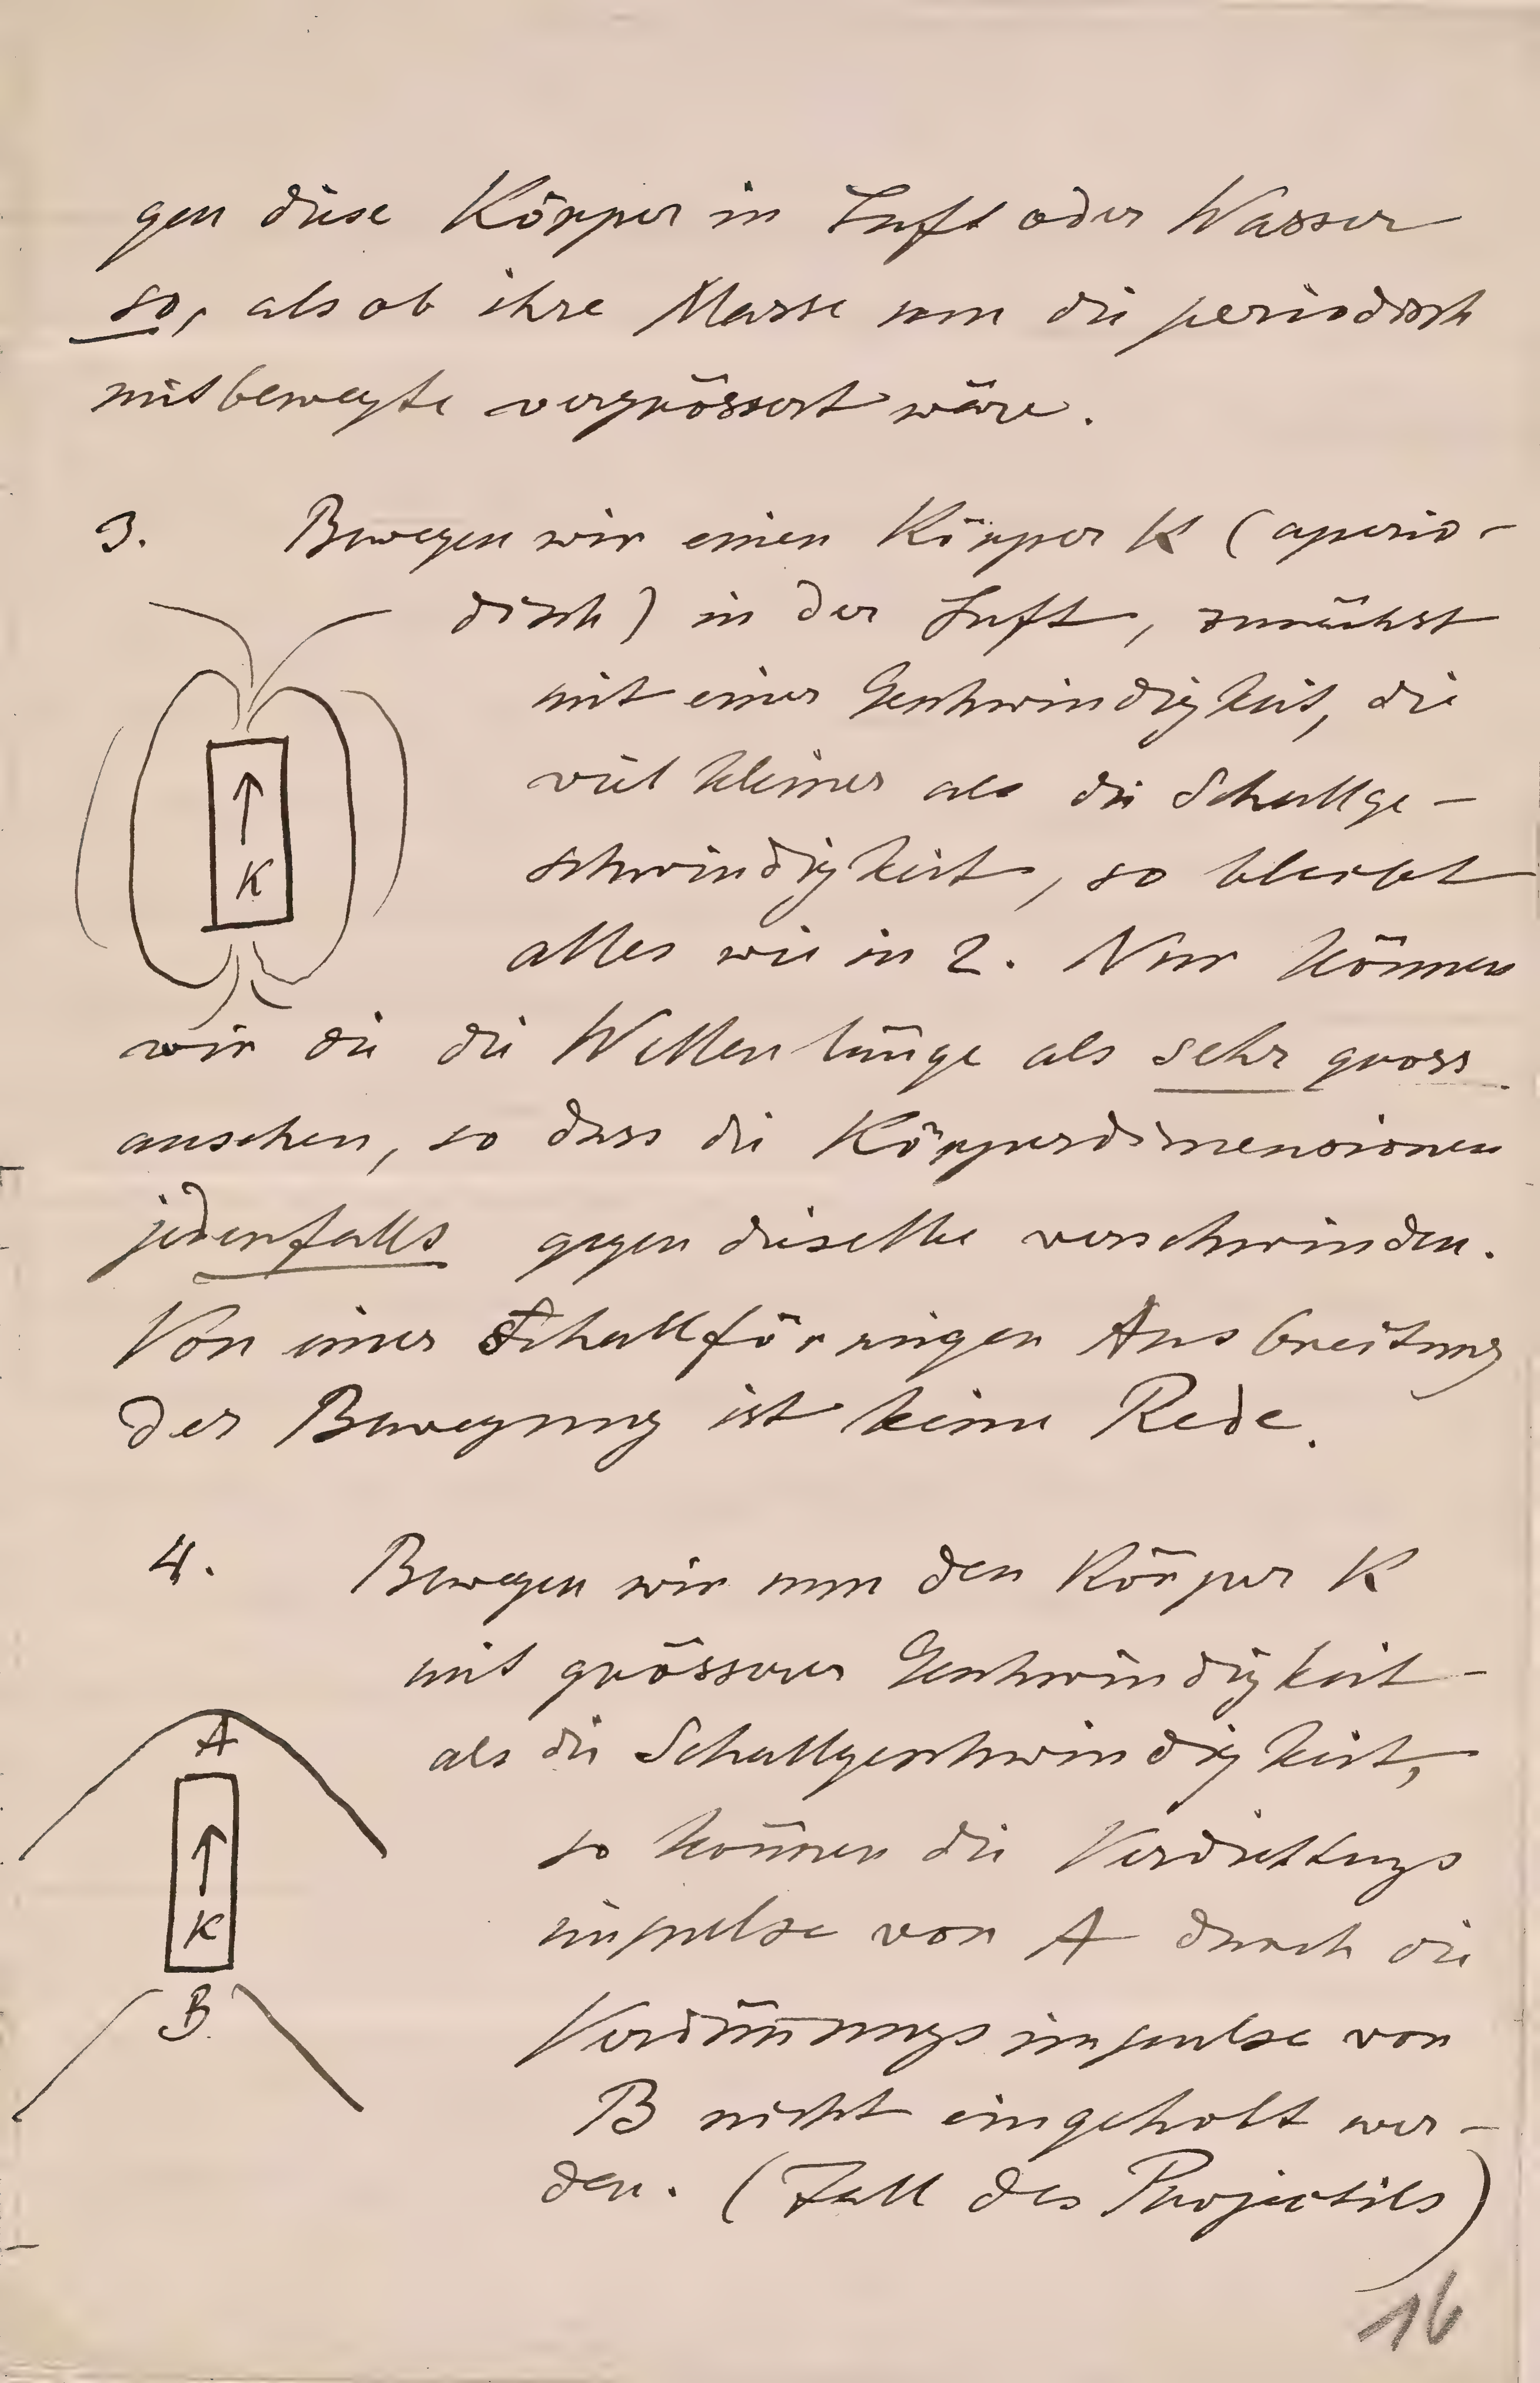 gen diese Körper in Luft oder Wasser
so, als ob ihre Masse um die periodisch
mitbewegte vergrössert wäre.
3. Bewegen wir einen Körper K (aperio-
disch) in der Luft, zunächst
mit einer Geschwindigkeit, die
viel kleiner als die Schallge-
schwindigkeit, so bleibt
alles wie in 2. Nur können
wir die die Wellenlänge als sehr gross
ansehen, so dass die Körperdimensionen
jedenfalls gegen dieselbe verschwinden.
Von einer Schallförmigen Ausbreitung
der Bewegung ist keine Rede.
K
4. Bewegen wir nun den Körper K
mit grösserer Geschwindigkeit
als die Schallgeschwindigkeit,
so können die Verdichtungs
impulse von A durch die
Verdünnungsimpulse von
B nicht eingeholt wer-
den. (Fall des Projectils)
A
K
B
16